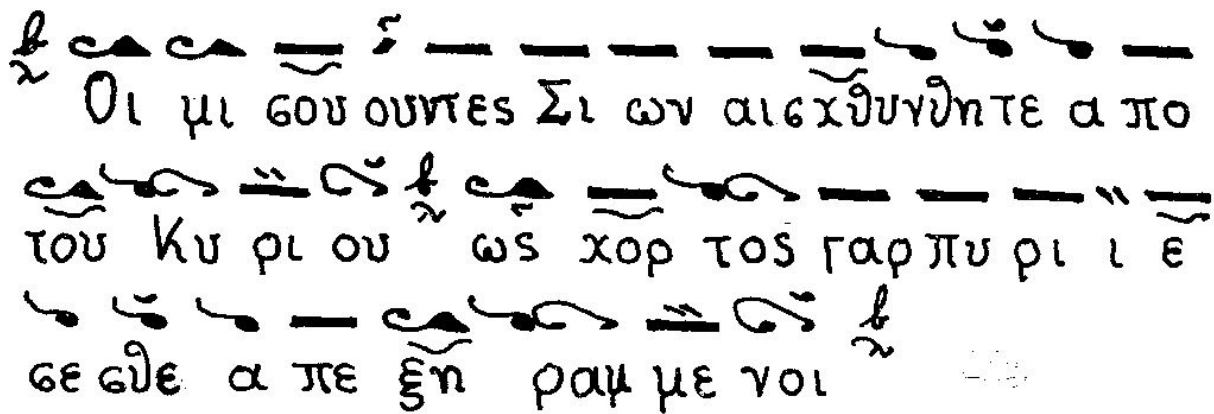 Οι μι σου ουντες Σι ων αισχθυνθητε α πο
του Κυ ρι ου ως χορ τος γαρ πυ ρι ι ε
σε σθε α πε ξη ραμ με νοι